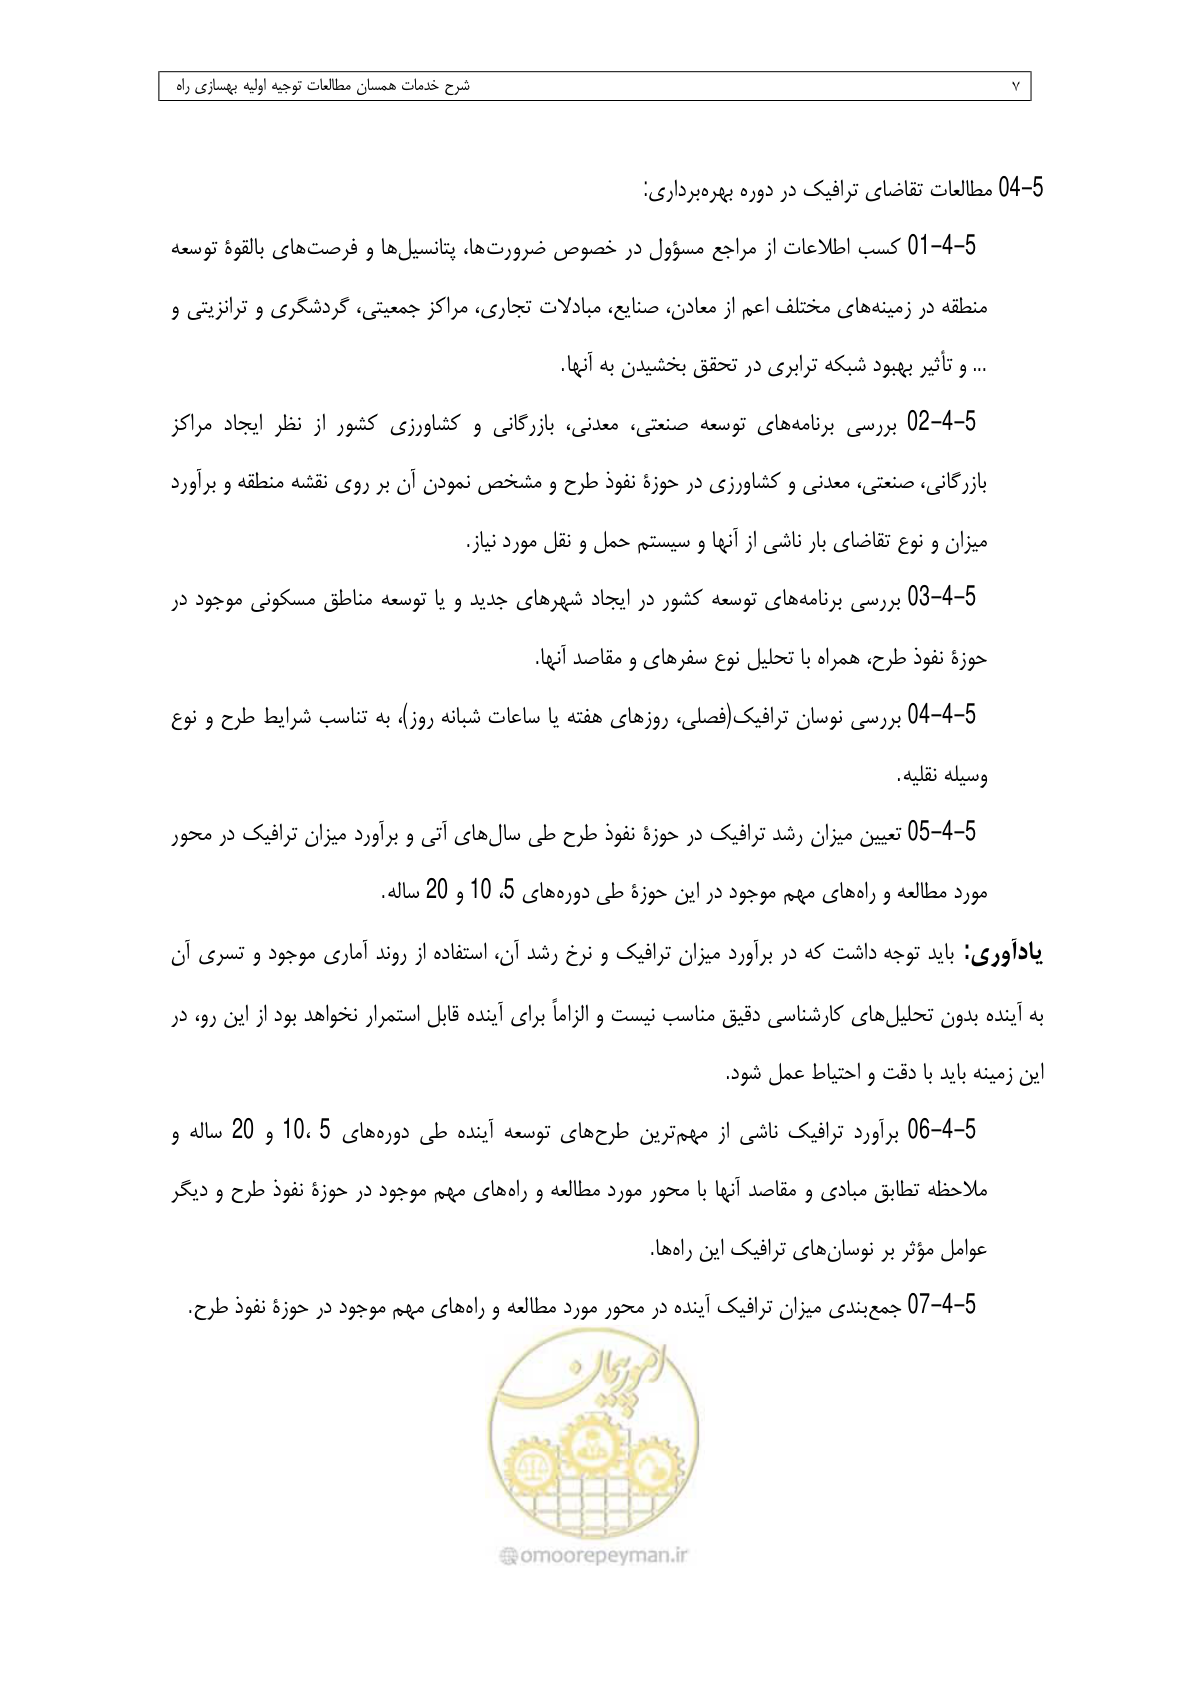 ۷ شرح خدمات همسان مطالعات توجیه اولیه بهسازی راه
04-5 مطالعات تقاضای ترافیک در دوره بهره‌برداری:
01-4-5 کسب اطلاعات از مراجع مسؤول در خصوص ضرورت‌ها، پتانسیل‌ها و فرصت‌های بالقوۀ توسعه
منطقه در زمینه‌های مختلف اعم از معادن، صنایع، مبادلات تجاری، مراکز جمعیتی، گردشگری و ترانزیتی و
... و تأثیر بهبود شبکه ترابری در تحقق بخشیدن به آنها.
02-4-5 بررسی برنامه‌های توسعه صنعتی، معدنی، بازرگانی و کشاورزی کشور از نظر ایجاد مراکز
بازرگانی، صنعتی، معدنی و کشاورزی در حوزۀ نفوذ طرح و مشخص نمودن آن بر روی نقشه منطقه و برآورد
میزان و نوع تقاضای بار ناشی از آنها و سیستم حمل و نقل مورد نیاز.
03-4-5 بررسی برنامه‌های توسعه کشور در ایجاد شهرهای جدید و یا توسعه مناطق مسکونی موجود در
حوزۀ نفوذ طرح، همراه با تحلیل نوع سفرهای و مقاصد آنها.
04-4-5 بررسی نوسان ترافیک(فصلی، روزهای هفته یا ساعات شبانه روز)، به تناسب شرایط طرح و نوع
وسیله نقلیه.
05-4-5 تعیین میزان رشد ترافیک در حوزۀ نفوذ طرح طی سال‌های آتی و برآورد میزان ترافیک در محور
مورد مطالعه و راه‌های مهم موجود در این حوزۀ طی دوره‌های 5، 10 و 20 ساله.
یادآوری: باید توجه داشت که در برآورد میزان ترافیک و نرخ رشد آن، استفاده از روند آماری موجود و تسری آن
به آینده بدون تحلیل‌های کارشناسی دقیق مناسب نیست و الزاماً برای آینده قابل استمرار نخواهد بود از این رو، در
این زمینه باید با دقت و احتیاط عمل شود.
06-4-5 برآورد ترافیک ناشی از مهم‌ترین طرح‌های توسعه آینده طی دوره‌های 5 ،10 و 20 ساله و
ملاحظه تطابق مبادی و مقاصد آنها با محور مورد مطالعه و راه‌های مهم موجود در حوزۀ نفوذ طرح و دیگر
عوامل مؤثر بر نوسان‌های ترافیک این راه‌ها.
07-4-5 جمع‌بندی میزان ترافیک آینده در محور مورد مطالعه و راه‌های مهم موجود در حوزۀ نفوذ طرح.
امور پیمان
omoorepeyman.ir